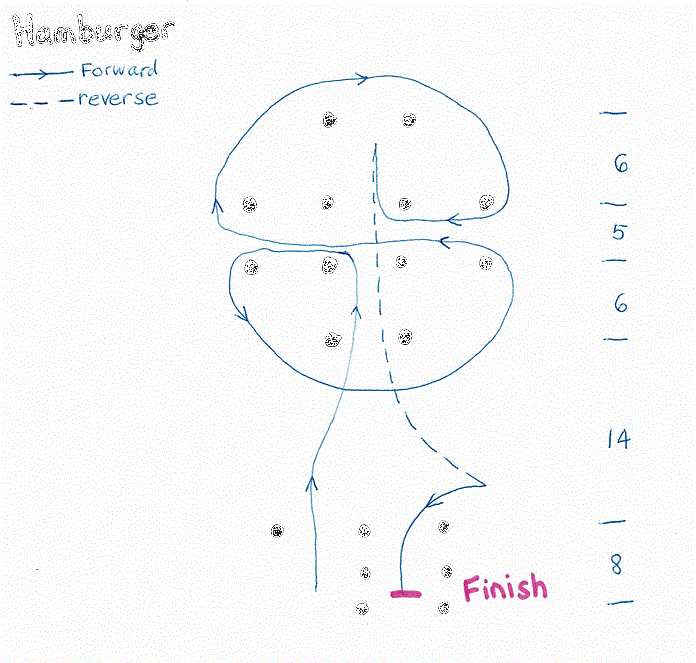 Hamburger
Forward
reverse
6
5
6
14
8
Finish